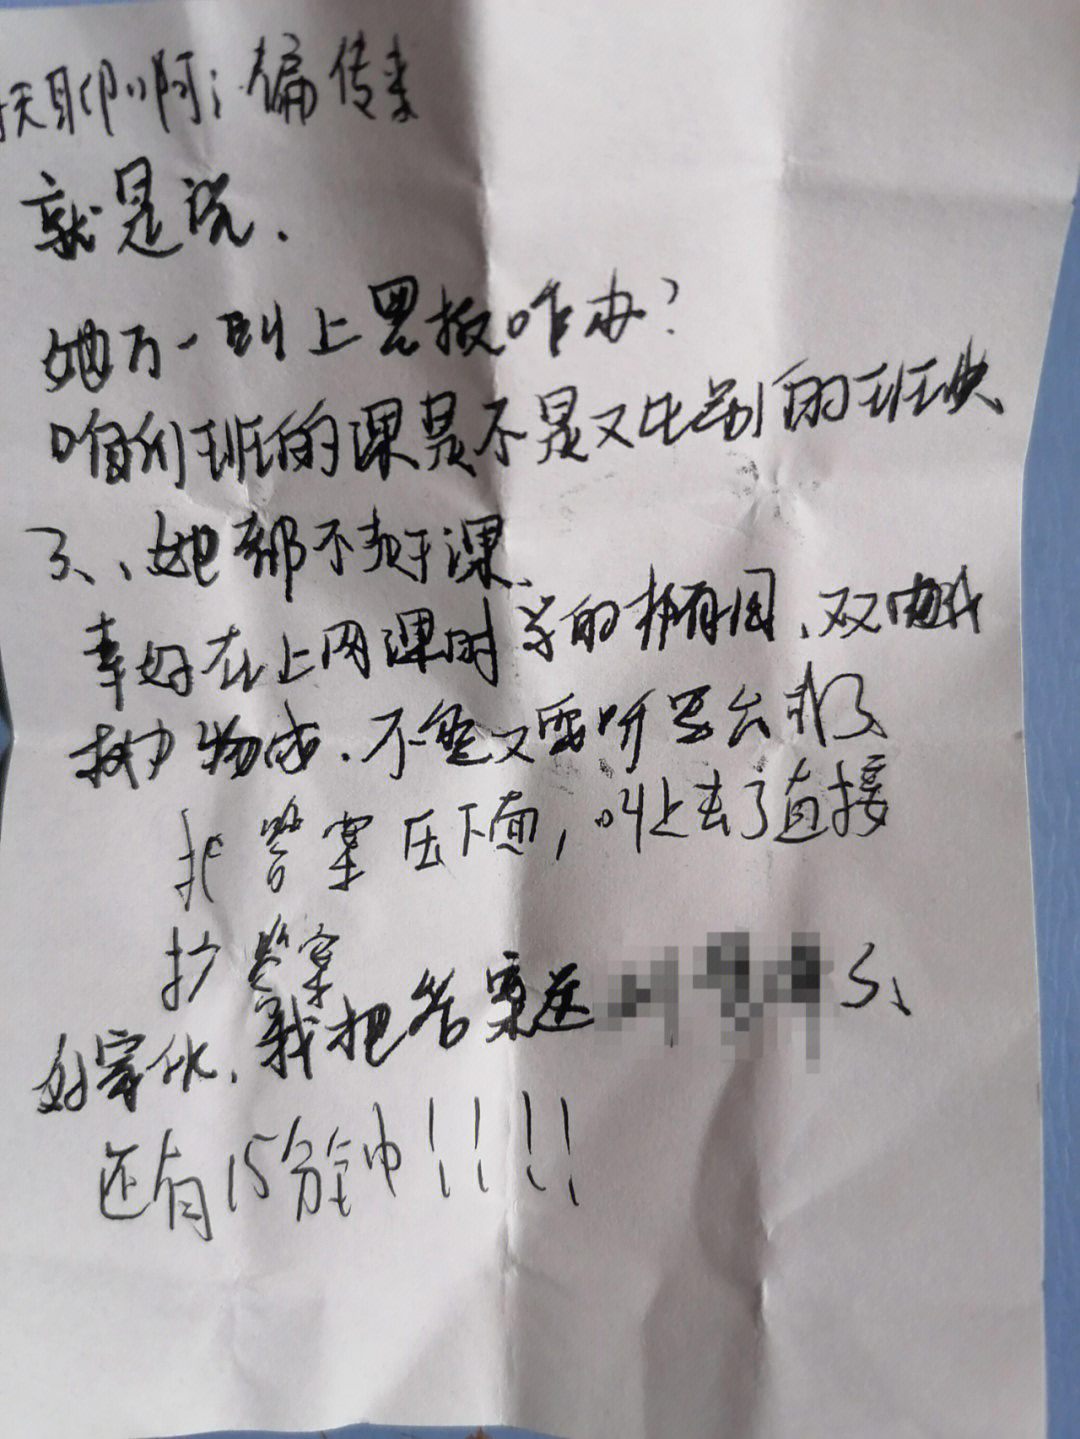 天聊啊；偏传来
就是说.
她万一叫上黑板咋办？
咱们班的课是不是又比别的班快
了、她都不赶课、
幸好在上网课时学的
不然又要听
把答案压下面，叫上去了直接
抄答案
好家伙，我把答案送 了、
还有15分钟！！！！